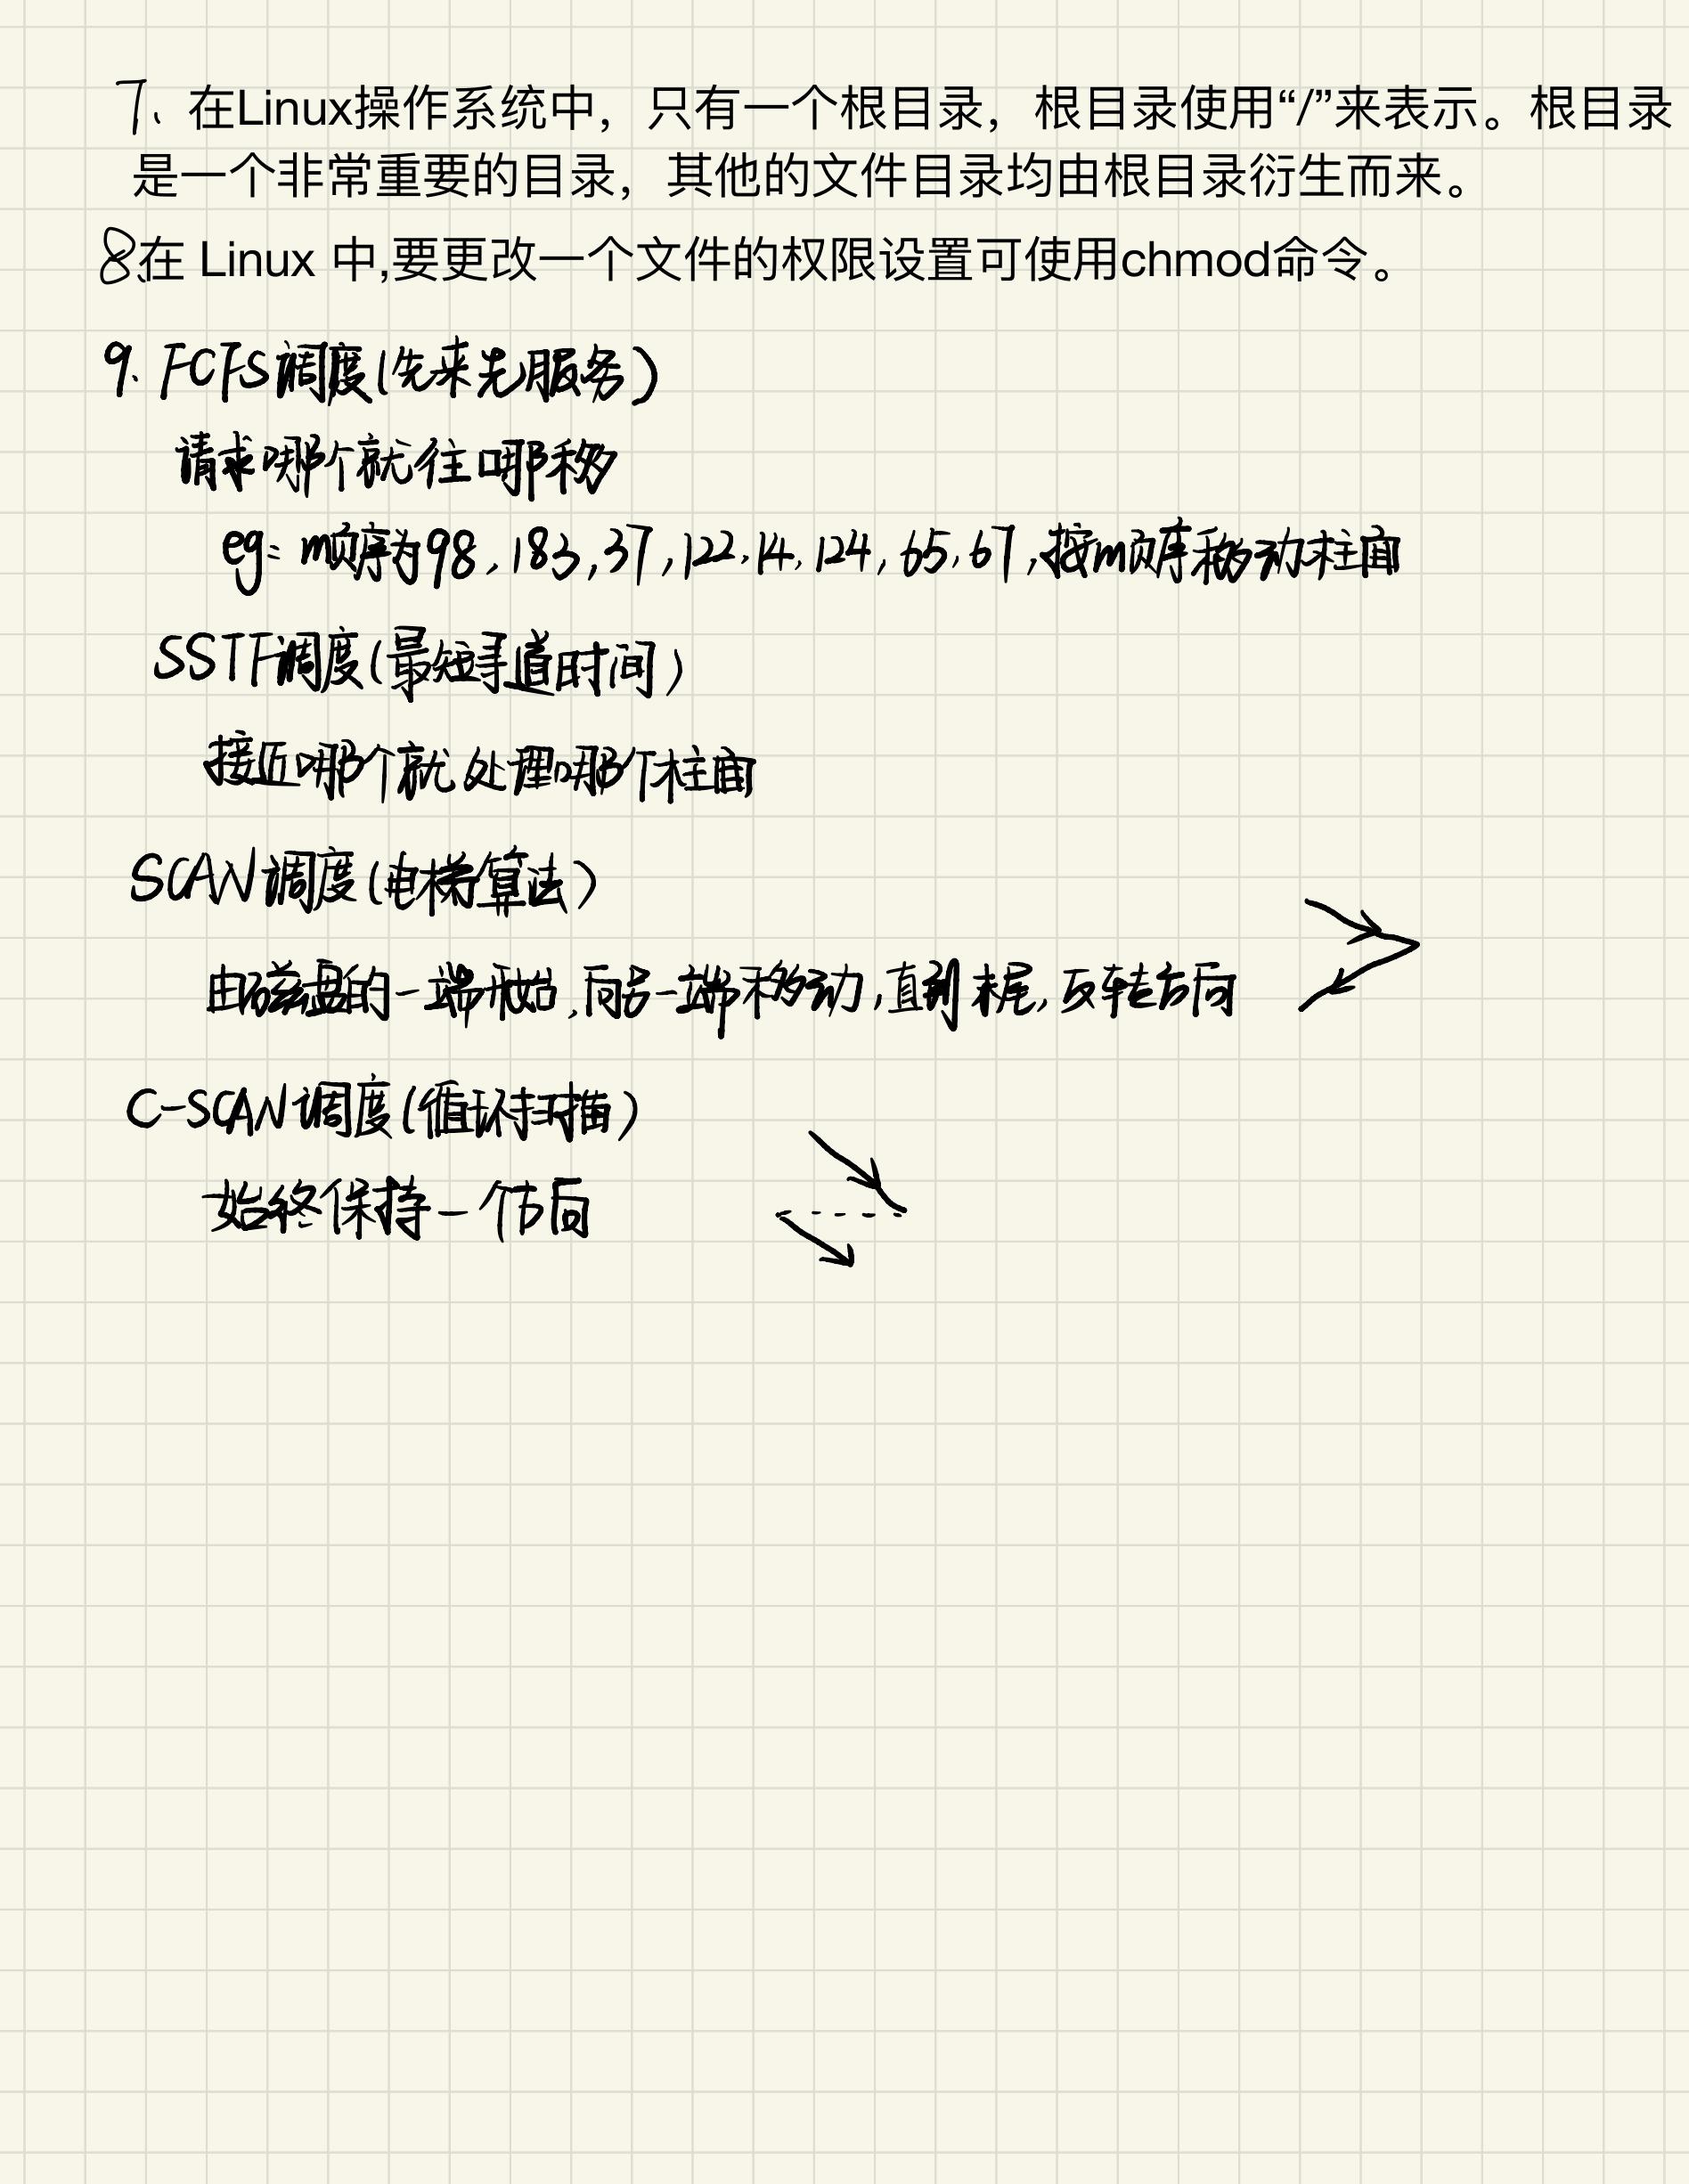 7、在Linux操作系统中，只有一个根目录，根目录使用“/”来表示。根目录
是一个非常重要的目录，其他的文件目录均由根目录衍生而来。
8、在 Linux 中,要更改一个文件的权限设置可使用chmod命令。
9. FCFS调度(先来先服务)
请求哪个就往哪移
eg: 顺序为98,183,37,122,14,124,65,67,按顺序移动柱面
SSTF调度(最短寻道时间)
接近哪个就处理哪个柱面
SCAN调度(电梯算法)
由磁盘的一端开始,向另一端移动,直到末尾,反转方向
C-SCAN调度(循环扫描)
始终保持一个方向